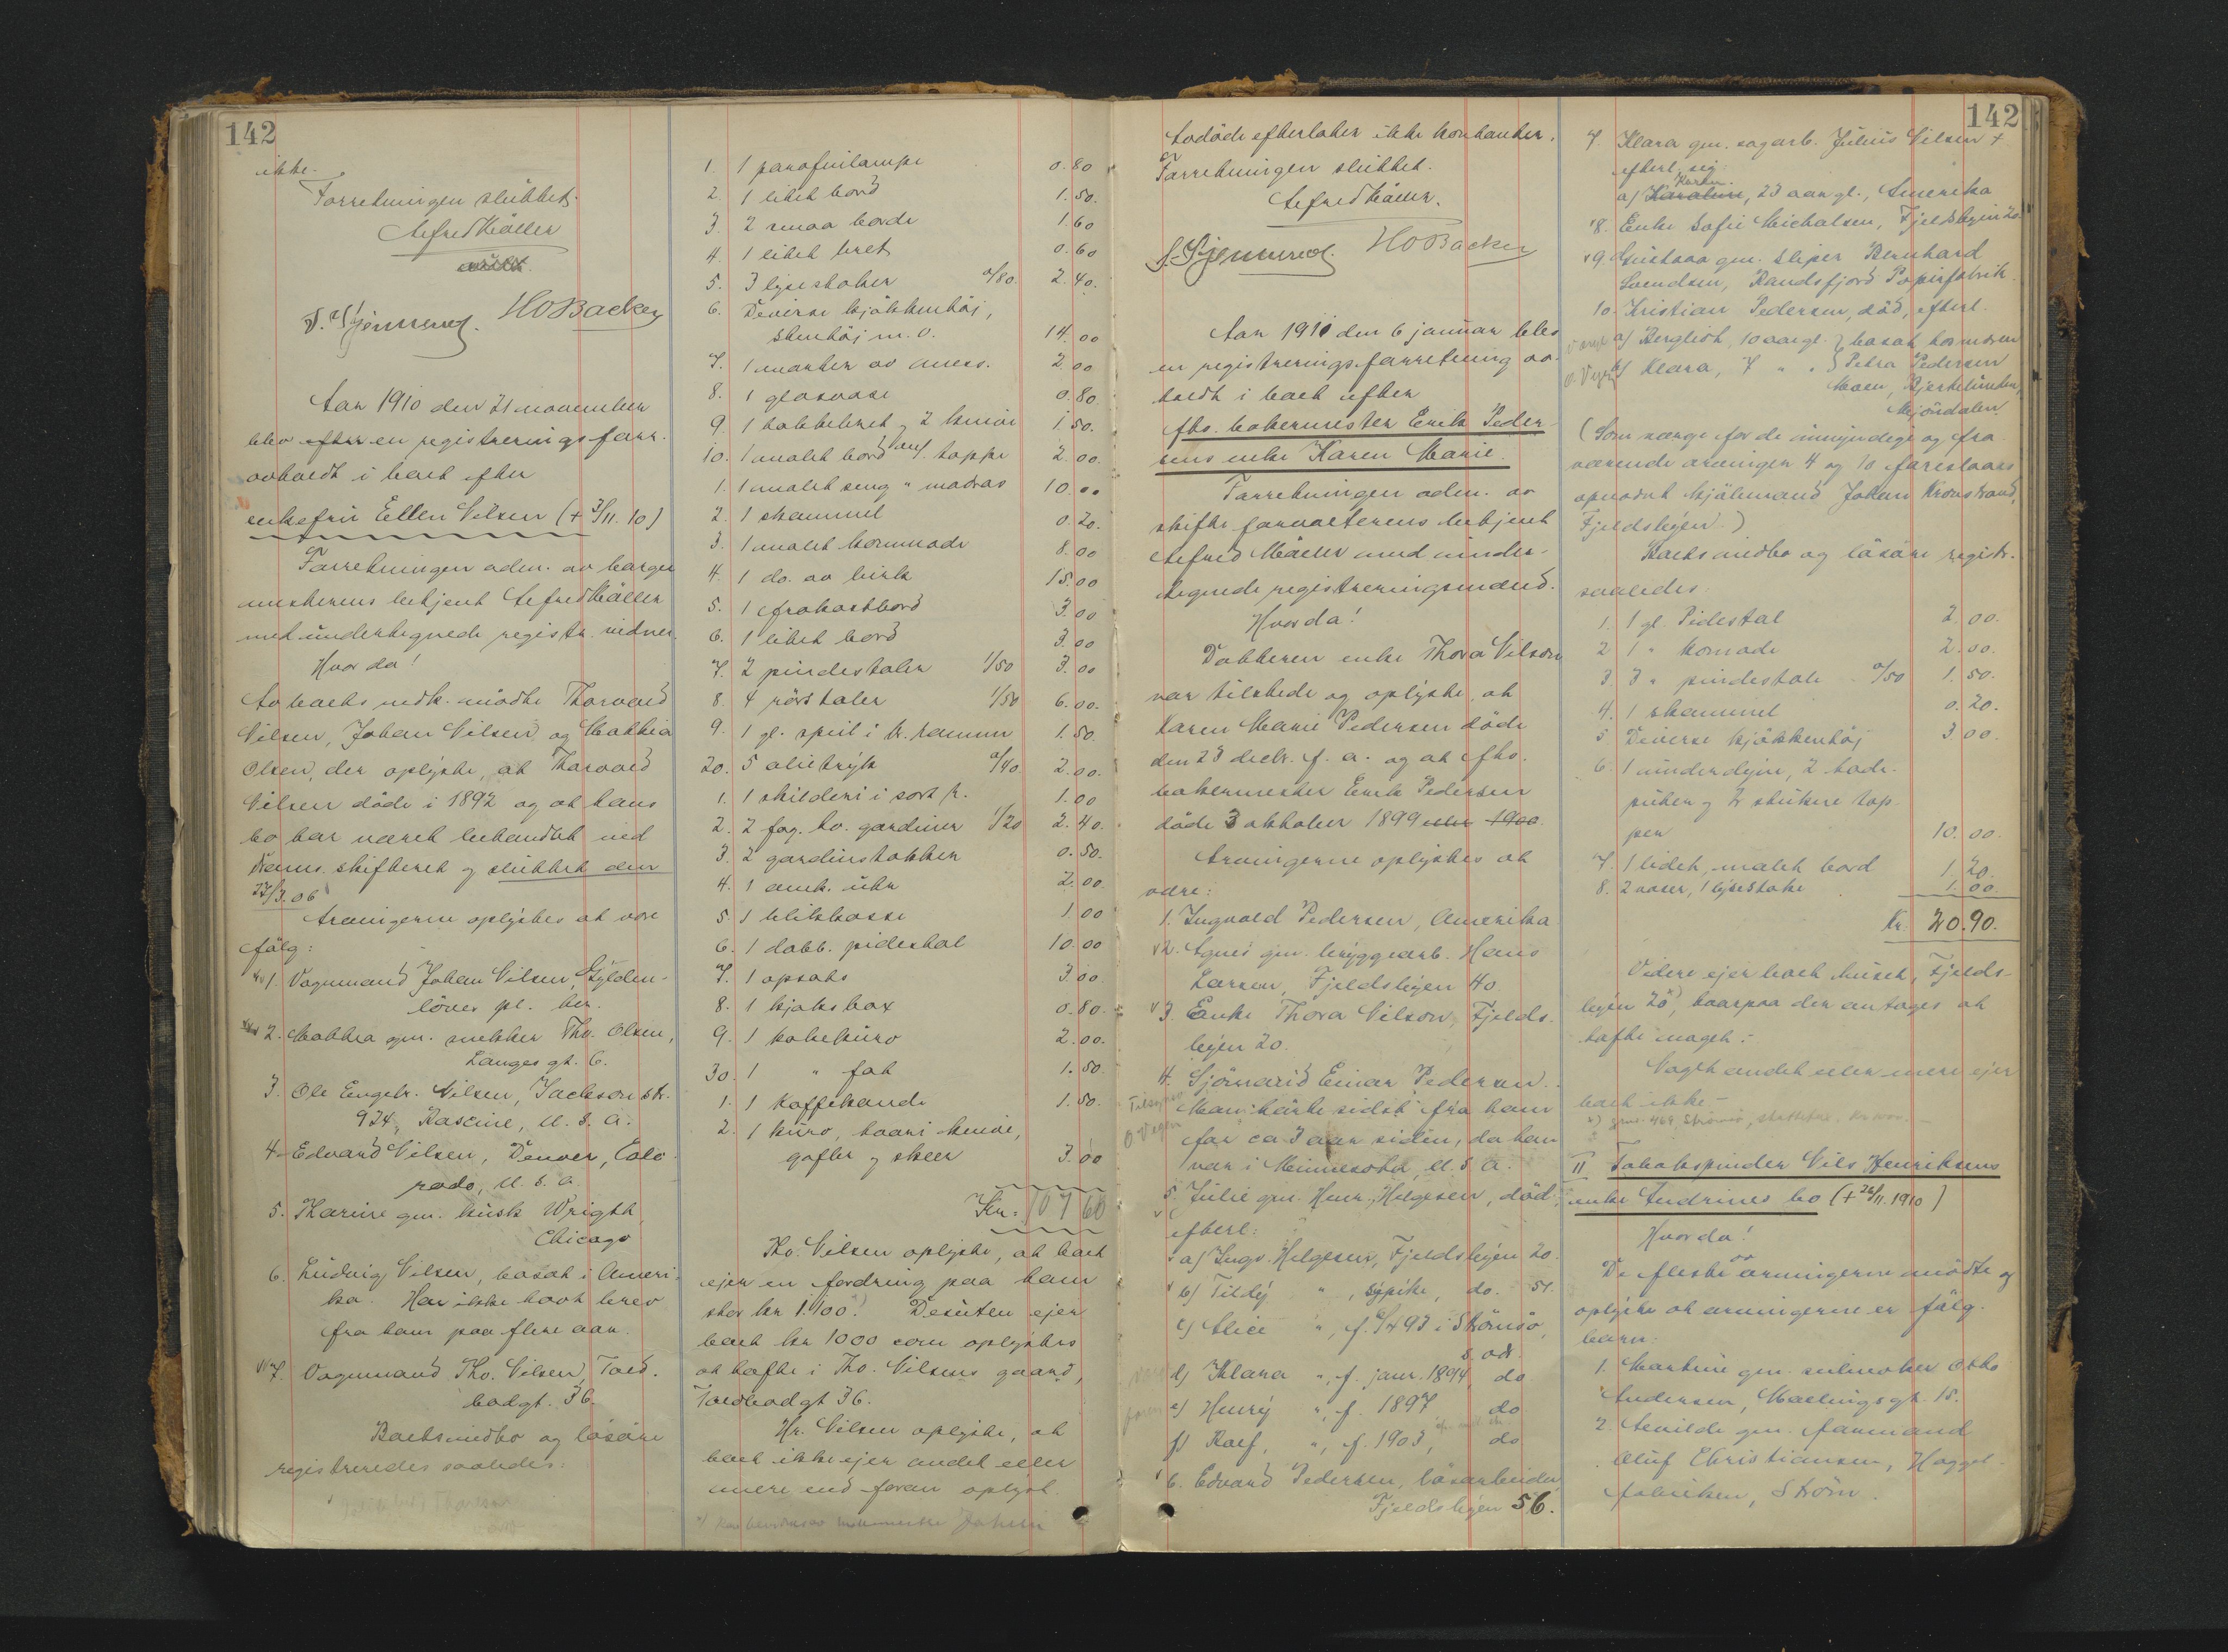 142
ikke.
Forretningen sluttet.
Alfred Møller
HOBacker
Aar 1910 den 21 november
blev efter en registreringsforr.
avholdt i boet efter
enkefru Ellen Nilsen (+ 3/11. 10)
Forretningen adm. av borger
mesterens betjent Alfred Møller
med undertegnede registr. vidner.
Hvor da!
Av boets vedk. mødte Thorvald
Nilsen, Johan Nilsen og Mathea
Olsen, der oplyste, at Thorvald
Nilsen døde i 1892 og at hans
bo har været behandlet ved
Drams. skifteret og sluttet den
27/3.06
Arvingerne oplystes at være
følg:
1. Vognmand Johan Nilsen, Gylden-
løves pl. her.
2. Mathea gm. snekker Thv. Olsen,
Langes gt. 6.
3. Ole Engebr. Nilsen, Jackson str.
924, Rascine, U. S. A.
4. Edvard Nilsen, Denver, Colo
rado, U. S. A.
5. Karine gm. kusk Wrigth
Chicago
6. Ludvig Nilsen, bosat i Ameri-
ka. Har ikke havt brev
fra ham paa flere aar.
7. Vognmand Th. Nilsen, Told.
bodgt. 36.
Boets indbo og løsøre
registreredes saaledes:
1. 1 parafinlampe 0.80
2. 1 litet bord 1.50.
3. 2 smaa borde 1.60
4. 1 litet bret 0.60
5. 3 lysestaker 0/80. 2.40.
6. Diverse kjøkkentøj,
stentøj m. v. 14.00
7. 1 morter av mess. 2.00
8. 1 glasvase 0.80
9. 1 hakkebret og 2 knive 1.50.
10. 1 malet bord m/ toppe 2.00.
1. 1 malet seng " madras 10.00
2. 1 skammel 0.20.
3. 1 malet kommode 8.00
4. 1 do. av birk 15.00
5. 1 frokostbord 3.00
6. 1 litet bord 3.00
7. 2 pindestoler 1/50 3.00
8. 4 rørstoler 1/50 6.00.
9. 1 gl. speil i br. ramme 1.50
20. 5 olietryk 0/40 2.00.
1. 1 skilderi i sort r. 1.00
2. 2 fag. hv. gardiner 1/20 2.40.
3. 2 gardinstokker 0.50.
4. 1 amk. uhr 2.00.
5. 1 blikbasse 1.00
6. 1 dobb. pidestal 10.00
7. 1 opsats 3.00
8. 1 kjaksbox 0.80.
9. 1 kakekurv 2.00.
30. 1 " fat 1.50
1. 1 kaffekande 1.50.
2. 1 kurv, hvori knive,
gafler og skeer 3.00
Kr. 107.60
Th. Nilsen oplyste, at boet
ejer en fordring paa ham
stor kr 1.100. Desuten ejer
boet kr 1000 som oplystes
at hefte i Th. Nilsens gaard,
Toldbodgt 36.
Hr. Nilsen oplyste, at
boet ikke ejer andet eller
mere end foran oplyst.
Avdøde efterlater ikke kontanter.
Forretningen sluttet.
Alfred Møller.
HOBacker
Aar 1911 den 6 januar blev
en registreringsforretning av-
holdt i boet efter
fhv. bakermester Erik Peder-
sens enke Karen Marie.
Forretningen adm. av
skifteforvalterens betjent
Alfred Møller med under-
tegnede registreringsmænd.
Hvor da!
Datteren enke Thora Nilson
var tilstede og oplyste, at
Karen Marie Pedersen døde
den 23 decbr. f. a. og at fhv.
bakermester Erik Pedersen
døde 3 oktober 1899 eller 1900.
Arvingerne oplystes at
være:
1. Ingvald Pedersen, Amerika
2. Agnes gm. bryggearb. Hans
Larsen, Fjeldsbyen 40.
3. Enke Thora Nilson, Fjelds-
byen 20.
4. Sjømand Einar Pedersen.
Man hørte sidst fra ham
for ca 3 aar siden, da han
var i Minnesota, U. S. A.
5. Julie gm. Henr. Helgesen, død,
efterl:
a) Ingv. Helgesen, Fjeldsbyen 20.
b) Tildy " , sypike, do. 51.
c) Alice " , f. 6/4 93 i Strømsø,
s. ods.
d) Klara " , f. janr. 1894, do
e) Henry " , f. 1897 do
f) Ralf, " , f. 1903, do
6. Edvard Pedersen, løsarbeider
Fjeldsbyen 56.
142
7. Klara gm. sagarb. Julius Nilsen +
efterl. sig:
a) Karoline, 23 aar gl., Amerika
8. Enke Sofie Michalsen, Fjeldsbyen 20.
9. Gustava gm. sliper Bernhard
Svendsen, Randsfjord Papirfabrik.
10. Kristian Pedersen, død, efterl.
a) Bergliot, 10 aar gl. } bosat hos moren
b) Klara, 7 " " } Petra Pedersen
Moen, Bjerkelunden,
Mjøndalen
(Som værge for de umyndige og fra
værende arvinger 4 og 10 foreslaaes
opnævnt kjøbmand Johan Kronstrand,
Fjeldsbyen.)
Boets indbo og løsøre registr.
saaledes:
1. 1 gl. Pidestal 2.00.
2. 1 " komode 2.00.
3. 3 " pindestole 0/50 1.50.
4. 1 skammel 0.20.
5. Diverse kjøkkentøj 3.00.
6. 1 underdyne, 2 hode-
puter og 2 stukne tæp-
per 10.00.
7. 1 lidet, malet bord 1.20.
8. 2 vaser, 1 lysestake 1.00
Kr. 20.90.
Videre ejer boet huset, Fjelds-
byen 20 x), hvorpaa der antages at
hefte noget.
Noget andet eller mere ejer
boet ikke.
II Tobakspinder Nils Henriksens
enke Andrines bo (+ 26/11. 1910)
Hvor da!
De fleste av arvingerne mødte og
oplyste at arvingerne er følg.
barn:
1. Martine gm. seilmaker Otto
Andersen, Mællingsgt. 15.
2. Alvilde gm. formand
Oluf Christiansen, Haggel-
fabriken, Strøm.